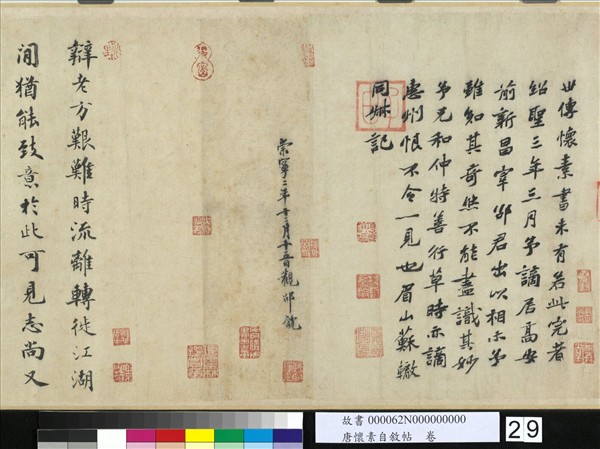 世傳懷素書未有若此完者
紹聖三年三月予謫居高安
前新昌宰邵君出以相示予
雖知其奇然不能盡識其妙
予兄和仲特善行草時亦謫
惠州恨不令一見也眉山蘇轍
同叔記
崇寧二年十二月十五日觀邵
辯老方艱難時流離轉徙江湖
間猶能致意於此可見志尚又
故書 000062N000000000
唐懷素自敘帖 卷
29